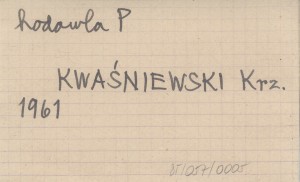 hodowla P
KWAŚNIEWSKI Krz.
1961